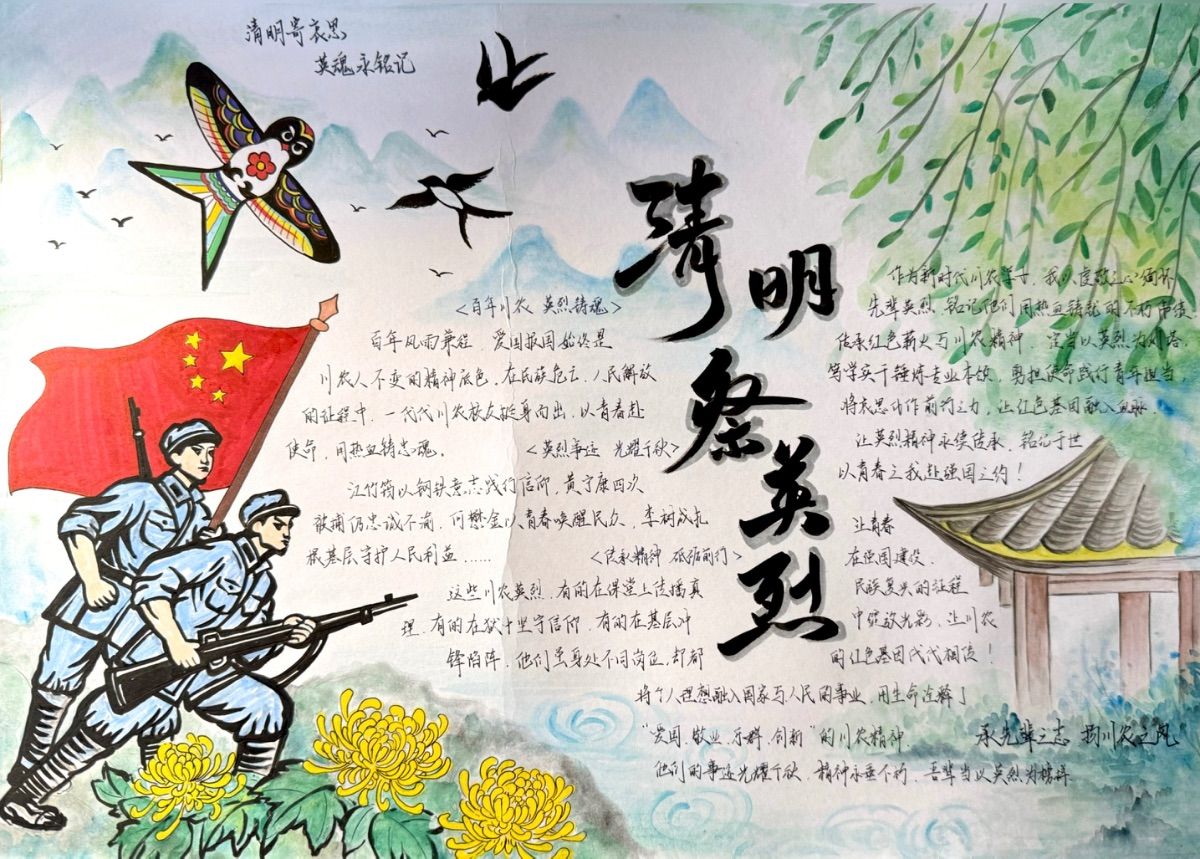 清明寄哀思
英魂永铭记
清明祭英烈
<百年川农 英烈铸魂>
百年风雨兼程，爱国报国始终是
川农人不变的精神底色，在民族危亡、人民解放
的征程中，一代代川农校友挺身向出，以青春赴
使命，用热血铸忠魂。
<英烈事迹 光耀千秋>
江竹筠以钢铁意志践行信仰，黄宁康四次
被捕仍忠诚不渝，何懋金以青春唤醒民众，李树成扎
根基层守护人民利益……
<传承精神 砥砺前行>
这些川农英烈，有的在课堂上传播真
理，有的在狱中坚守信仰，有的在基层冲
锋陷阵，他们虽身处不同岗位，却都
将个人理想融入国家与人民的事业，用生命诠释了
“爱国、敬业、乐群、创新”的川农精神，
他们的事迹光耀千秋，精神永垂不朽，吾辈当以英烈为榜样
作为新时代川农学子，我以虔敬之心缅怀
先辈英烈，铭记他们用热血铸就的不朽功绩，
传承红色薪火与川农精神，定当以英烈为灯塔，
笃学实干锤炼专业本领，勇担使命践行青年担当，
将哀思化作前行之力，让红色基因融入血脉，
让英烈精神永续传承，铭记于世
以青春之我赴强国之约！
让青春
在强国建设、
民族复兴的征程
中绽放光彩，让川农
的红色基因代代相传！
承先辈之志 扬川农之风